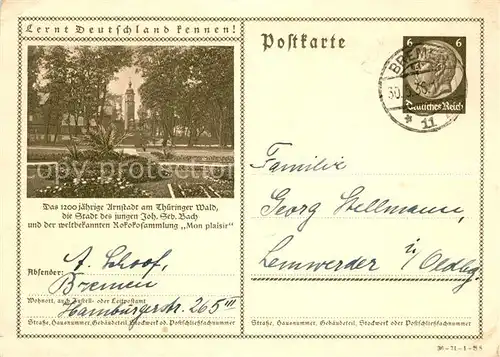 Lernt Deutschland kennen!
Postkarte
6 6
Deutsches Reich
BREMEN
30.
* 11
Das 1200 jährige Arnstadt am Thüringer Wald,
die Stadt des jungen Joh. Seb. Bach
und der weltbekannten Rokokosammlung „Mon plaisir"
Absender: A. Schoof,
Bremen
Wohnort, auch Zustell- oder Leitpostamt
Hamburgerstr. 265 III
Straße, Hausnummer, Gebäudeteil, Stockwerk od. Postschließfachnummer
Familie
Georg Stellmann,
Lemwerder i/ Oldbg.
Straße, Hausnummer, Gebäudeteil, Stockwerk oder Postschließfachnummer
36-71-1-B8